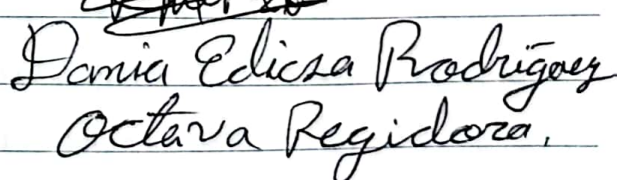 Dania Edicsa Rodríguez
Octava Regidora.